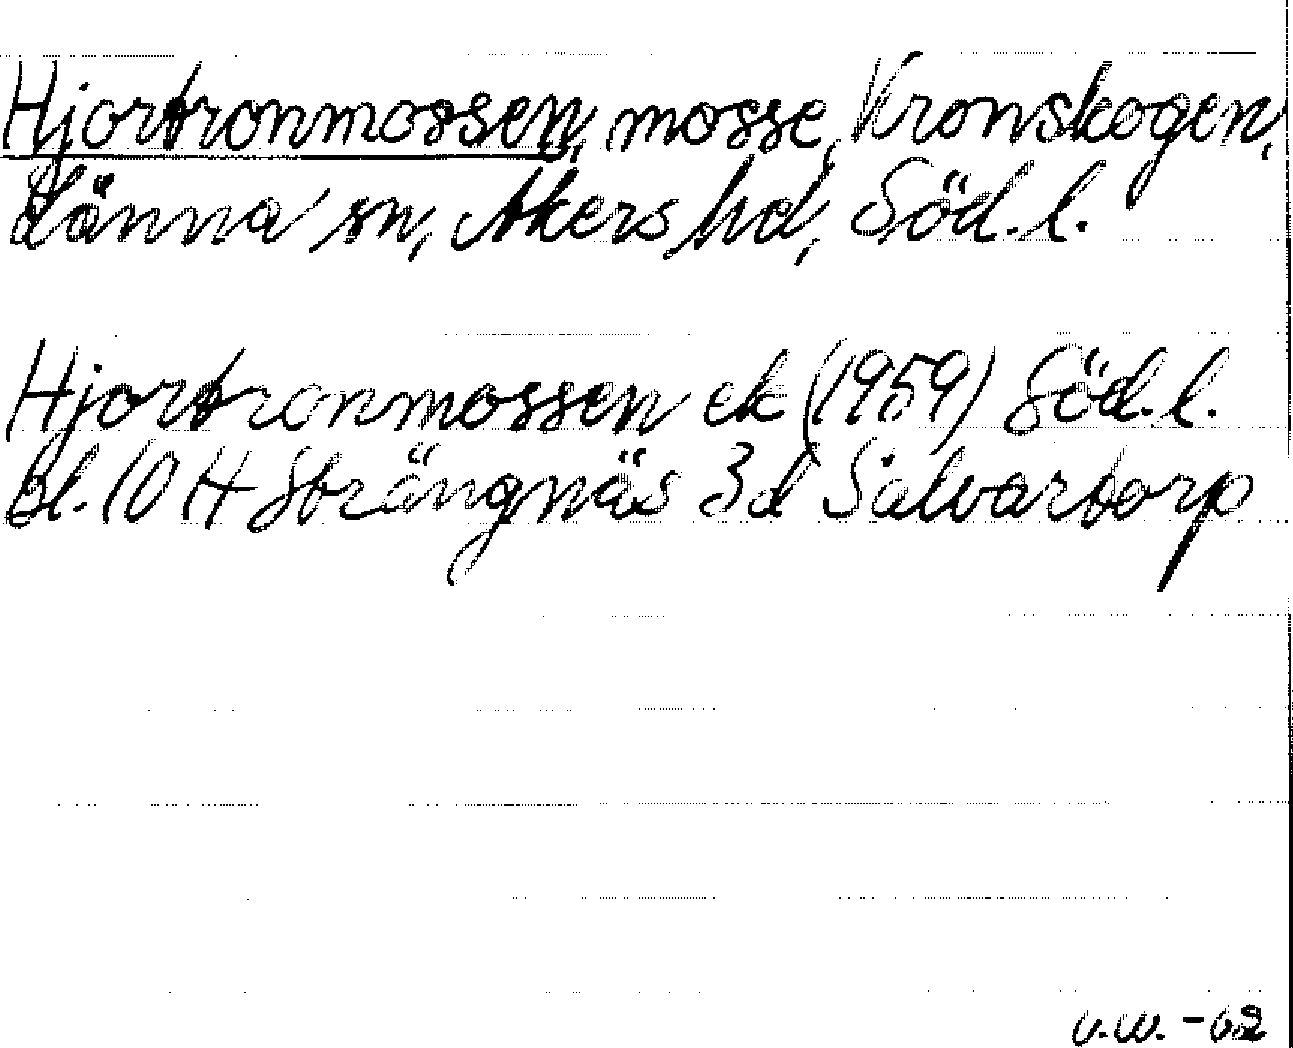 Hjortronmossen, mosse, Kronskogen,
Länna sn, Åkers hd, Söd. l.
Hjortronmossen ek (1959) Söd. l.
Bl. 10 H Strängnäs 3d Salvartorp
v.w. -62